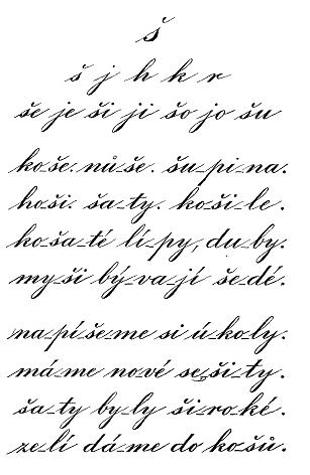 š
š j h k r
še je ši ji šo jo šu
ko-še. nů-še. šu-pi-na.
ho-ši. ša-ty. ko-ši-le.
ko-ša-té lí-py, du-by.
my-ši bý-va-jí še-dé.
na-pí-še-me si ú-ko-ly.
má-me no-vé se-ši-ty.
ša-ty by-ly ši-ro-ké.
ze-lí dá-me do ko-šů.